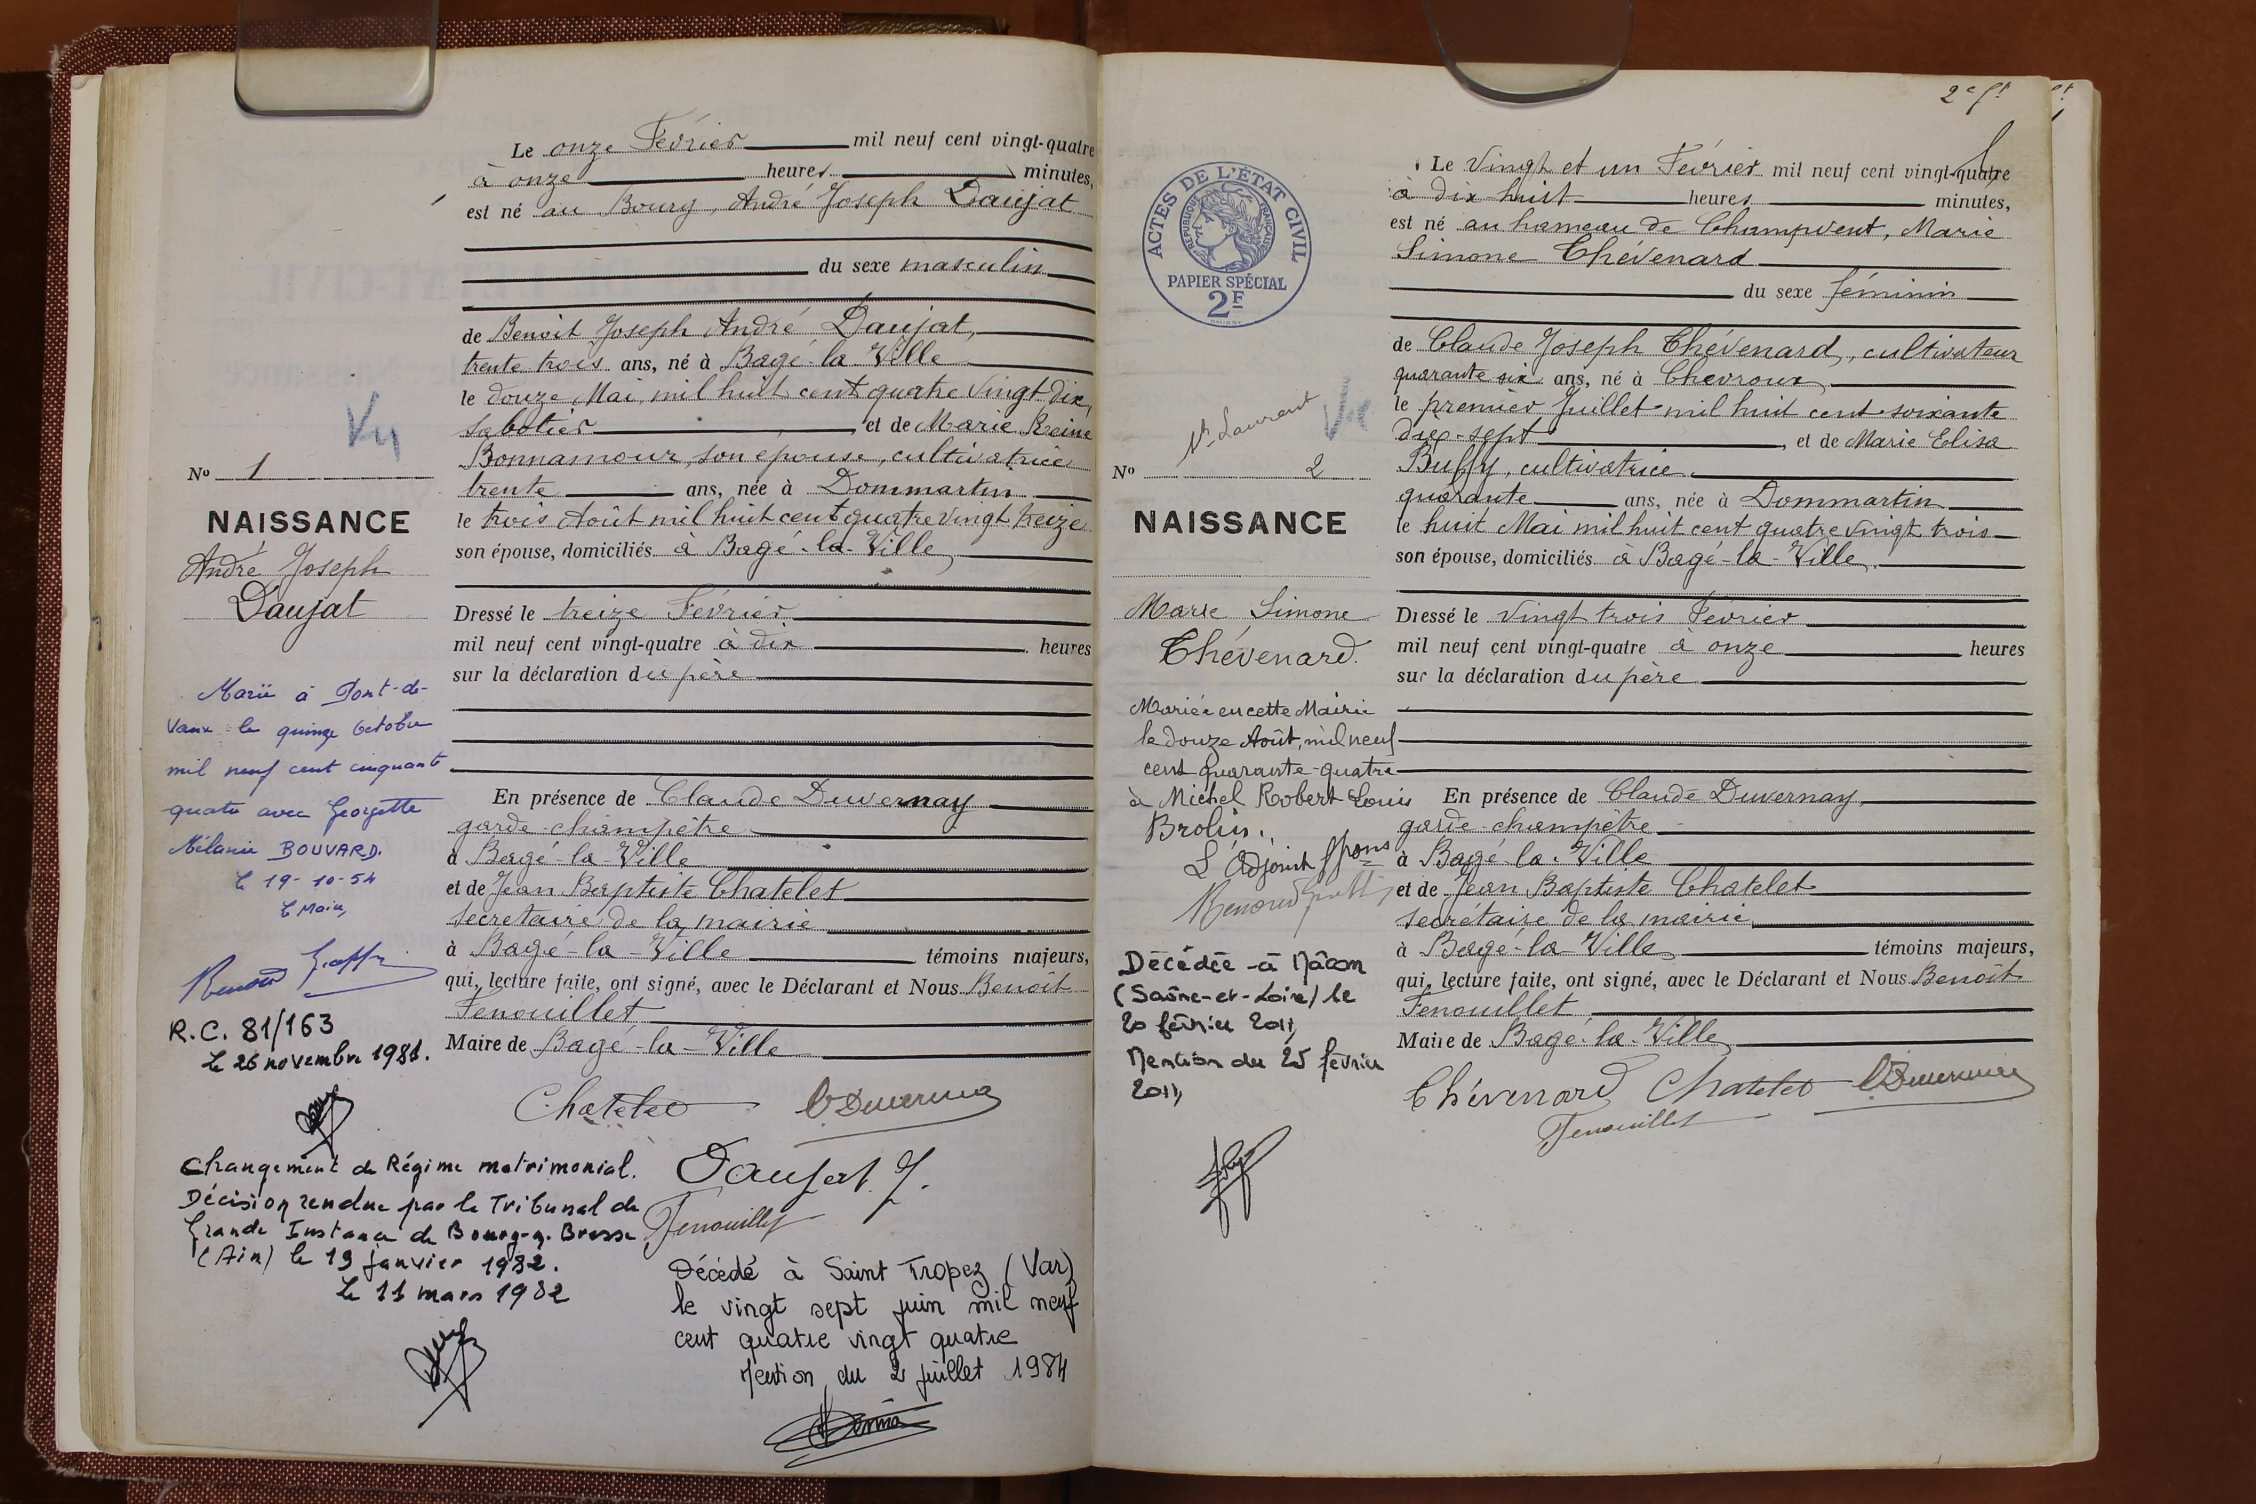 Le onze Février mil neuf cent vingt-quatre
à onze heures minutes,
est né au Bourg, André Joseph Daujat
du sexe masculin
de Benoit Joseph André Daujat,
trente trois ans, né à Bagé-la-Ville
le douze Mai, mil huit cent quatre vingt dix,
sabotier et de Marie Reine
Bonnamour, son épouse, cultivatrice
trente ans, née à Dommartin
le trois Août mil huit cent quatre vingt treize
son épouse, domiciliés à Bagé-la-Ville
Dressé le treize Février
mil neuf cent vingt-quatre à dix heures
sur la déclaration du père
En présence de Claude Duvernay
garde-champêtre
à Bagé-la-Ville
et de Jean Baptiste Chatelet
secretaire de la mairie
à Bagé-la-Ville témoins majeurs,
qui, lecture faite, ont signé, avec le Déclarant et Nous Benoit
Fenouillet
Maire de Bagé-la-Ville
Chatelet C. Duvernay
Daujat J.
Fenouillet
Décédé à Saint Tropez (Var)
le vingt sept juin mil neuf
cent quatre vingt quatre
Mention du 2 juillet 1984
Vu
No 1
NAISSANCE
André Joseph
Daujat
Marié à Pont-de-
Vaux le quinze Octobre
mil neuf cent cinquante
quatre avec Georgette
Mélanie BOUVARD.
le 19-10-54
Le Maire,
R.C. 81/163
Le 26 novembre 1981.
Changement de Régime matrimonial.
Décision rendue par le Tribunal de
Grande Instance de Bourg-en-Bresse
(Ain) le 19 janvier 1982.
Le 11 mars 1982
2e ft
ACTES DE L'ÉTAT CIVIL
RÉPUBLIQUE FRANÇAISE
PAPIER SPÉCIAL
2F
St Laurent
Vu
No 2
NAISSANCE
Marie Simone
Thévenard.
Mariée en cette Mairie
le douze Août, mil neuf
cent quarante-quatre
à Michel Robert Louis
Brolin.
L'Adjoint
Décédée à Mâcon
(Saône-et-Loire) le
20 février 2011,
Mention du 25 février
2011,
Le Vingt et un Février mil neuf cent vingt-quatre
à dix huit heures minutes,
est né au hameau de Champvent, Marie
Simone Thévenard
du sexe féminin
de Claude Joseph Thévenard, cultivateur
quarante six ans, né à Chevroux
le premier Juillet mil huit cent soixante
dix-sept, et de Marie Elisa
Buffy, cultivatrice
quarante ans, née à Dommartin
le huit Mai mil huit cent quatre vingt trois
son épouse, domiciliés à Bagé-la-Ville.
Dressé le vingt trois Février
mil neuf cent vingt-quatre à onze heures
sur la déclaration du père
En présence de Claude Duvernay
garde-champêtre
à Bagé-la-Ville
et de Jean Baptiste Chatelet
secrétaire de la mairie
à Bagé-la-Ville témoins majeurs,
qui, lecture faite, ont signé, avec le Déclarant et Nous Benoit
Fenouillet
Maire de Bagé-la-Ville
Thévenard Chatelet C. Duvernay
Fenouillet